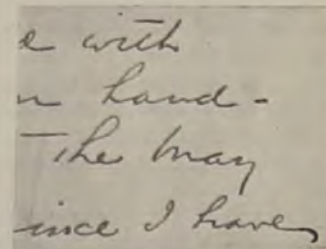 e with
n hand -
The May
ince I have